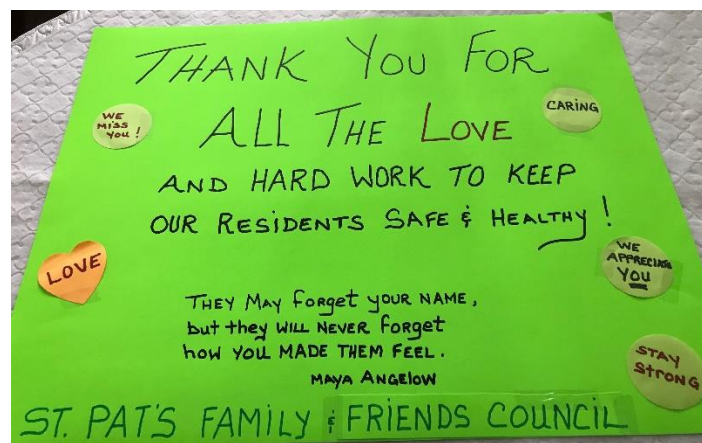 THANK YOU FOR
ALL THE LOVE
AND HARD WORK TO KEEP
OUR RESIDENTS SAFE & HEALTHY!
WE
MISS
YOU!
CARING
LOVE
WE
APPRECIATE
YOU
THEY MAY forget YOUR NAME,
but they WILL NEVER forget
how YOU MADE THEM FEEL.
MAYA ANGELOW
STAY
STRONG
ST. PAT'S FAMILY & FRIENDS COUNCIL